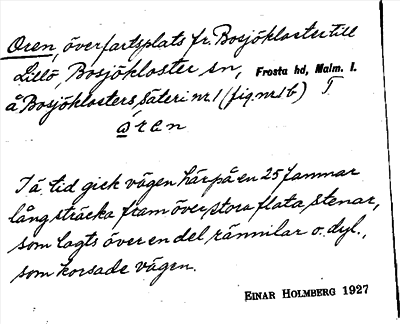 Oren, överfartsplats fr. Bosjökloster till
Lillö, Bosjökloster sn, Frosta hd, Malm. l.
å Bosjöklosters säteri nr 1 (fig. nr 1 b) I
ø̀ r e n
I ä. tid gick vägen här på en 25 famnar
lång sträcka fram över stora flata stenar,
som lagts över en del rännilar o. dyl.,
som korsade vägen.
EINAR HOLMBERG 1927